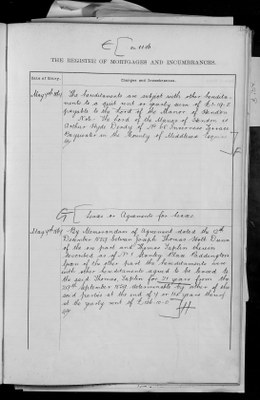 E [ on 11th
THE REGISTER OF MORTGAGES AND INCUMBRANCES.
Date of Entry.
Charges and Incumbrances.
May 9th 1864
The hereditaments are subject with other heredita-
ments to a quit rent or yearly sum of
payable to the Lord of the Manor of Hendon
Note. The Lord of the Manor of Hendon is
Arthur Hyde Dendy of No. 65 Inverness Terrace
Bayswater in the County of Middlesex Esquire
G [ Leases or Agreements for Leases
May 9th
By Memorandum of Agreement dated the
December 1859 between Joseph Thomas
of the one part and Thomas therein
described as of No. 1 Stanley Place Paddington
of the other part the hereditaments were
with other hereditaments agreed to be leased to
the said Thomas for 21 years from the
29th September 1859 determinable by either of the
said parties at the end of 7 or 14 years thereof
at the yearly rent of